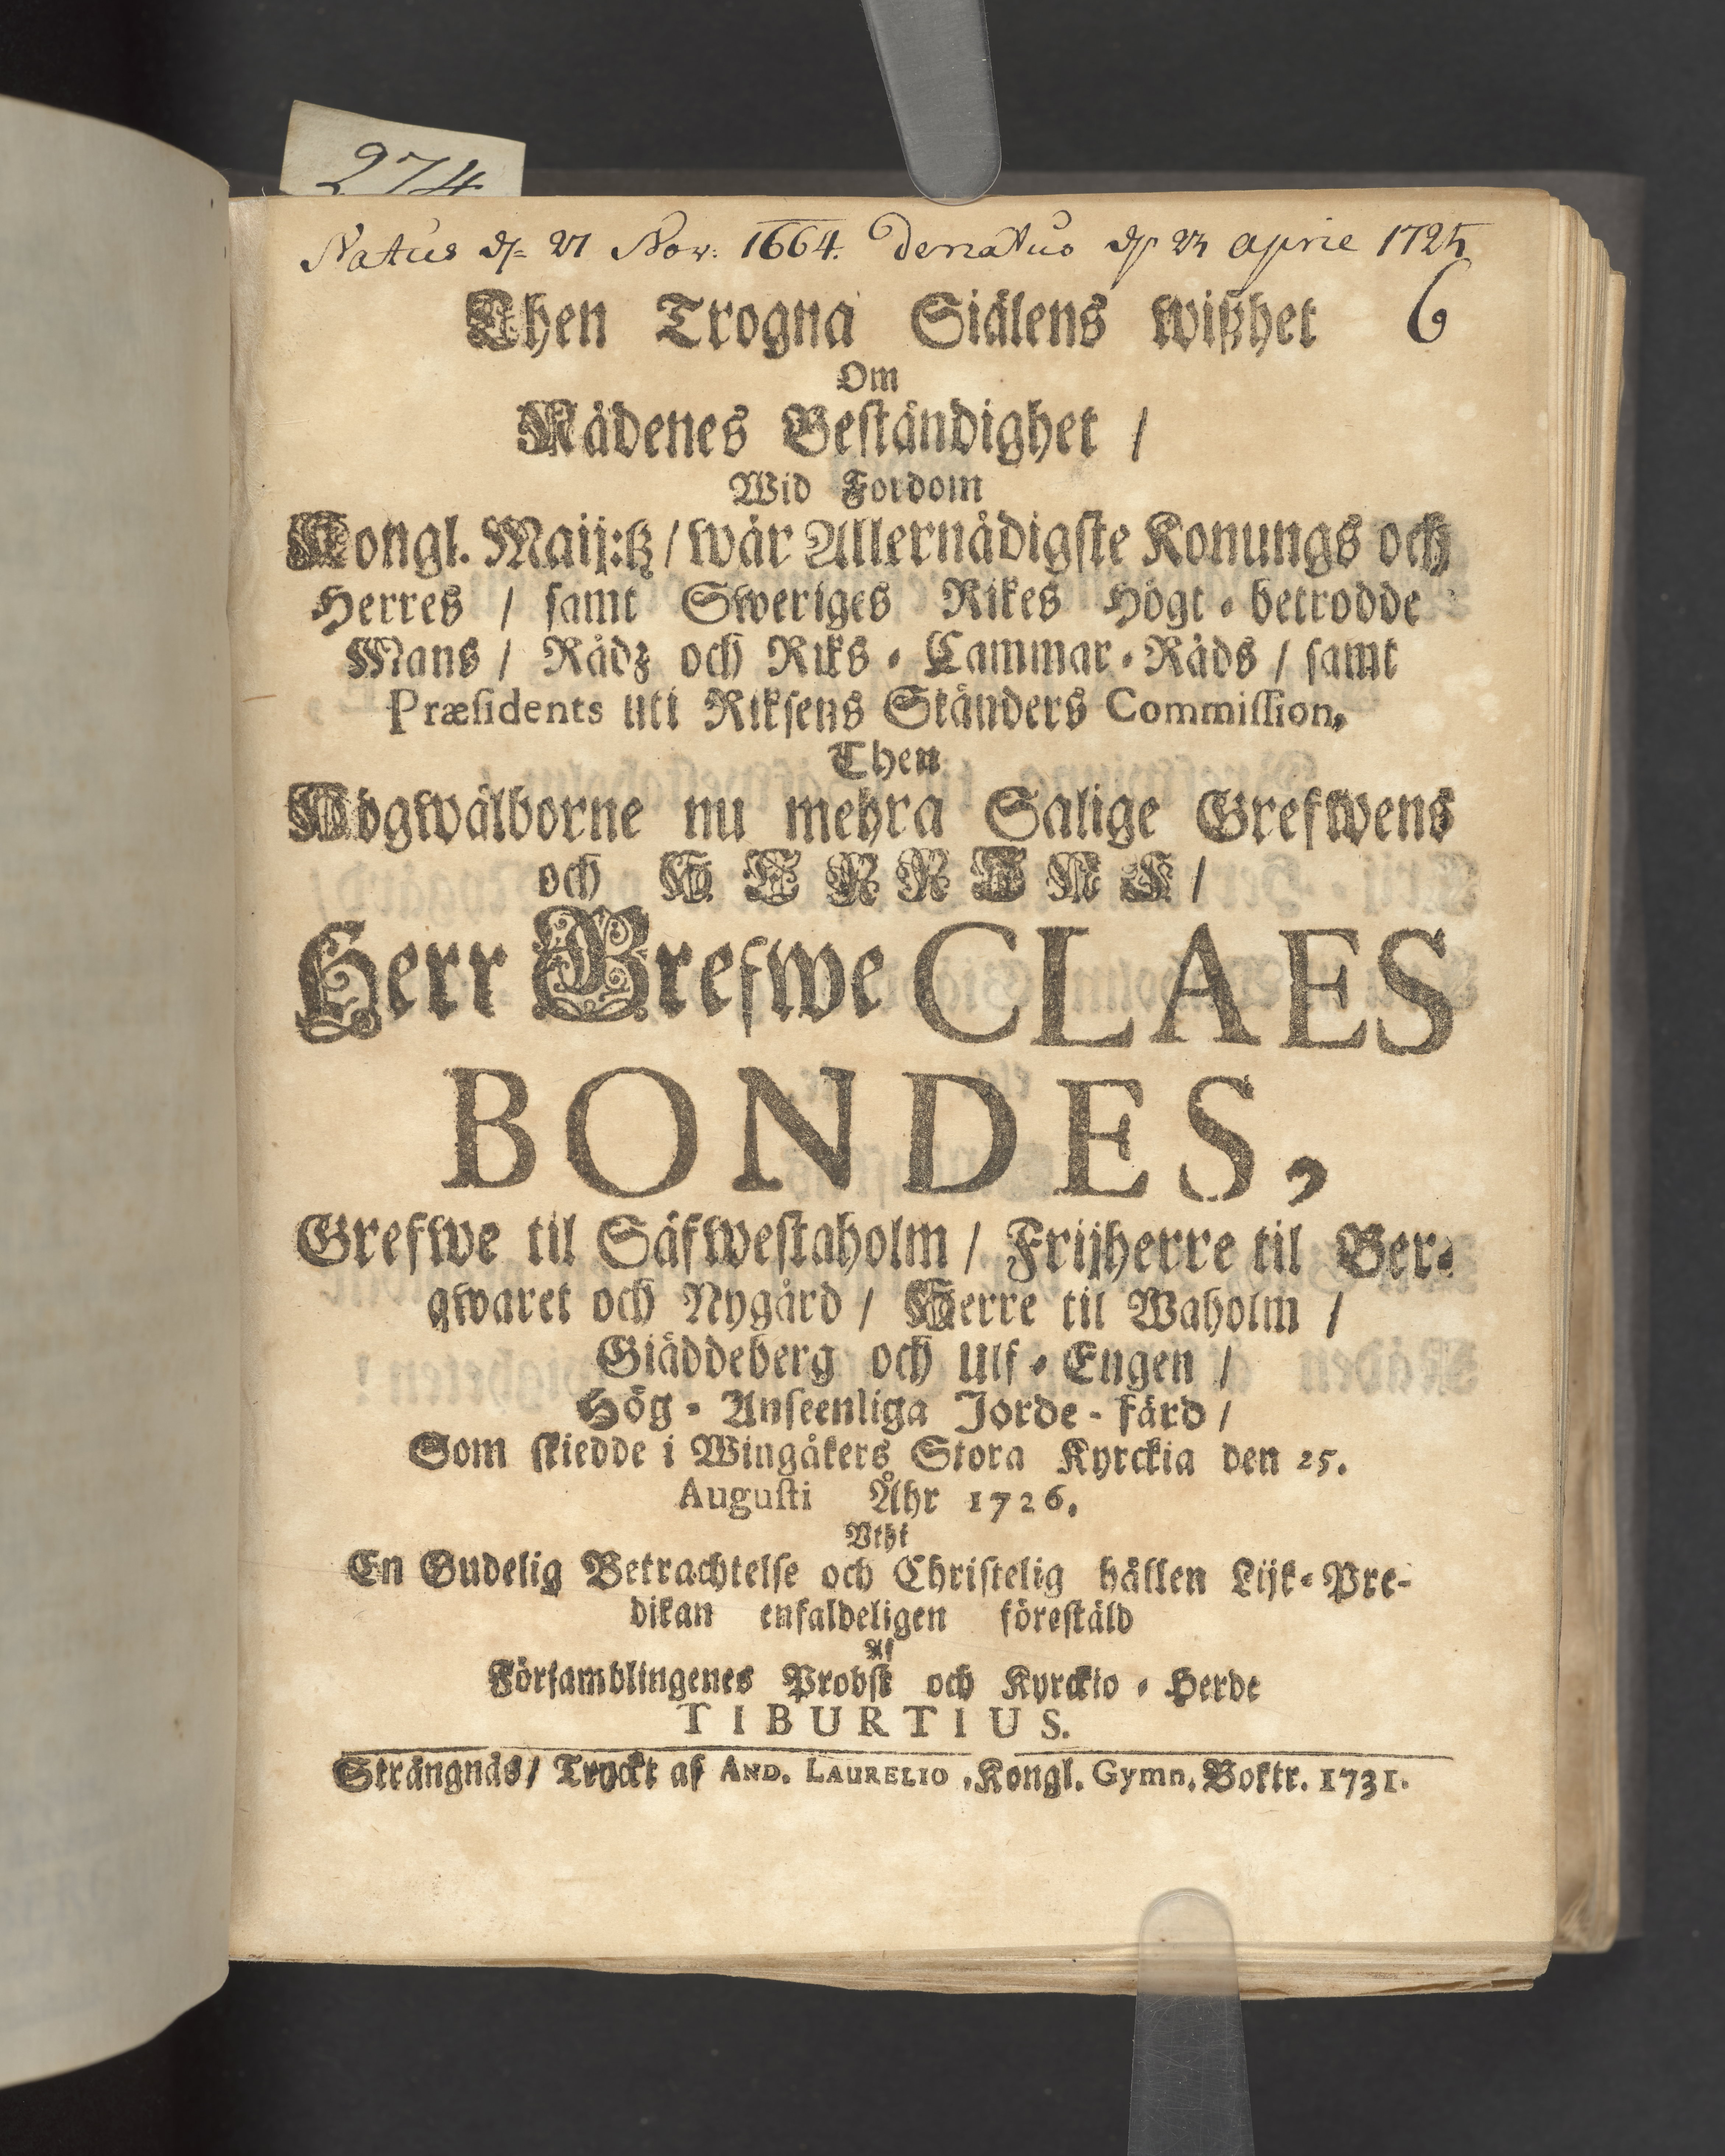 274
Natus d. 27 Nov: 1664. Denatus d. 23 aprie 1725
6
Then Trogna Siälens wißhet
Om
Nådenes Beständighet /
Wid Fordom
Kongl. Maij:tz / wår Allernådigste Konungs och
Herres / samt Sweriges Rikes Högt-betrodde
Mans / Rådz och Riks-Cammar-Råds / samt
Præsidents uti Riksens Ständers Commission,
Then
Högwälborne nu mehra Salige Grefwens
och HERRENS /
Herr Grefwe CLAES
BONDES,
Grefwe til Säfwestaholm / Frijherre til Ber-
qwaret och Nygård / Herre til Waholm /
Giäddeberg och Ulf-Engen /
Hög-Anseenliga Jorde-färd /
Som skiedde i Wingåkers Stora Kyrckia den 25.
Augusti Åhr 1726.
Vthi
En Gudelig Betrachtelse och Christelig hållen Lijk-Pre-
dikan enfaldeligen förestäld
Af
Församblingenes Probst och Kyrckio-Herde
TIBURTIUS.
Strängnäs / Tryckt af AND. LAURELIO, Kongl. Gymn. Boktr. 1731.